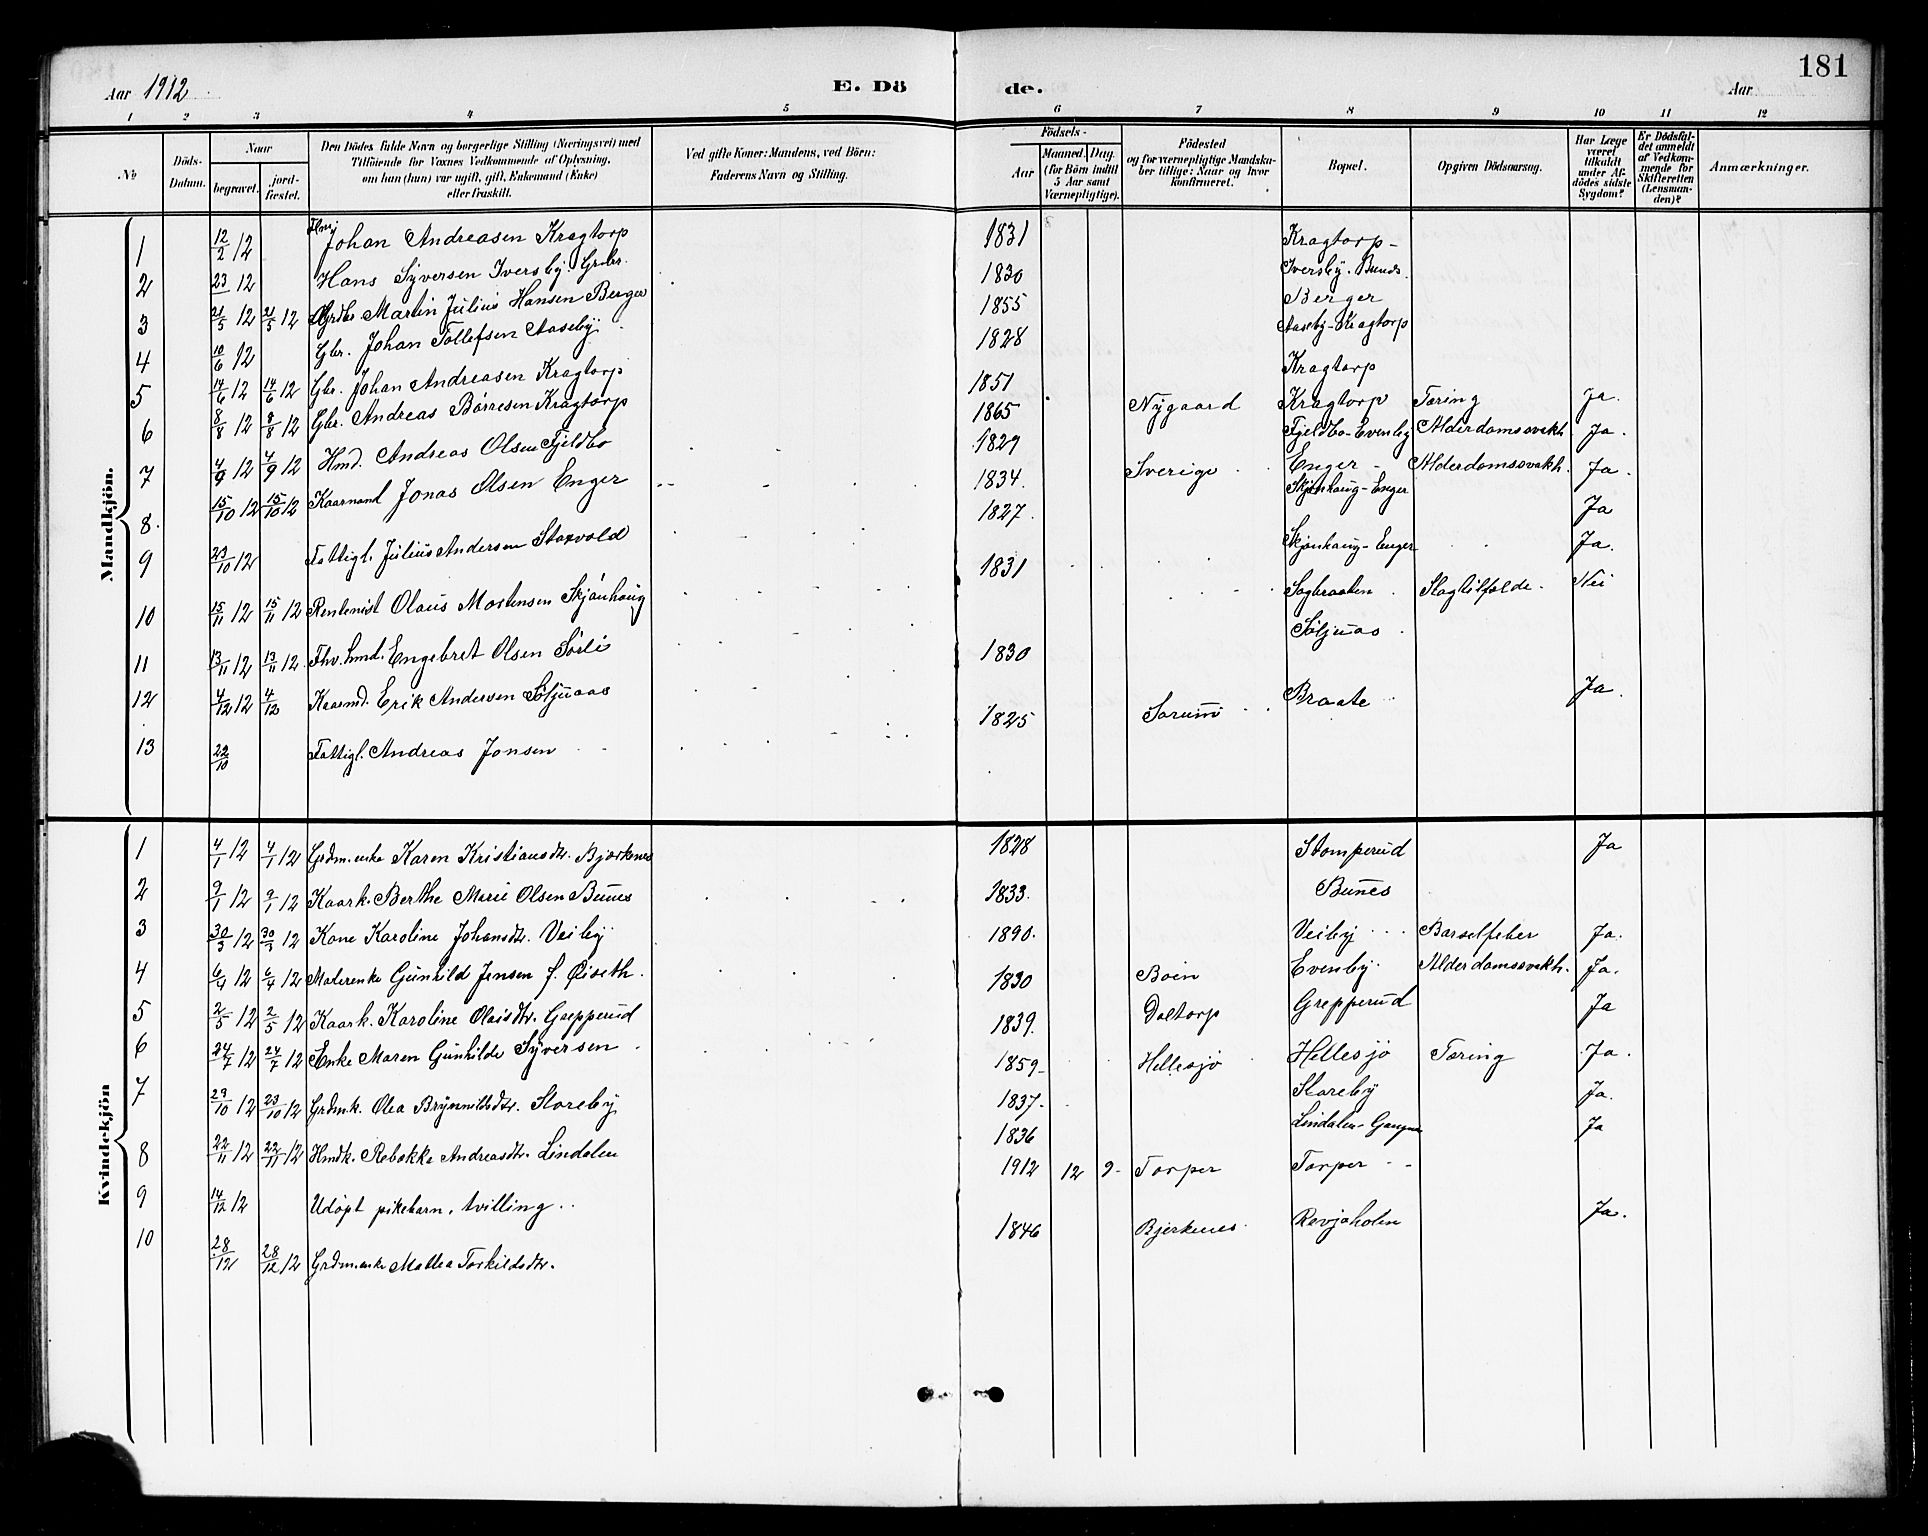 181
Aar 1912
E. Dö
de.
Aar
1 2 3 4 5
6 7 8 9 10 11 12
No
Döds-Datum.
Naar
begravet.
jord-fæstet.
Den Dödes fulde Navn og borgerlige Stilling (Næringsvei) med
Tilföiende for Voxnes Vedkommende af Oplysning,
om han (hun) var ugift, gift, Enkemand (Enke)
eller fraskilt.
Ved gifte Koner: Mandens, ved Börn:
Faderens Navn og Stilling.
Födsels-
Aar
Maaned. Dag.
(for Börn indtil
5 Aar samt
Værnepligtige).
Födested
og for værnepligtige Mandska-
ber tillige: Naar og hvor
konfirmeret.
Bopæl.
Opgiven Dödsaarsag.
Har Læge
været
tilkaldt
under Af-
dödes sidste
Sygdom?
Er Dödsfal-
det anmeldt
af Vedkom-
mende for
Skifteretten
(Lensman-
den)?
Anmærkninger.
Mandkjön.
1 12/2 12 Johan Andreasen Kragtorp 1831 Kragtorp
2 23 12 Hans Syversen Iversby. Grbr. 1830 Iversby. Bunds.
3 21/5 12 21/5 12 Grdbr Martin Julius Hansen Berger 1855 Berger
4 10/6 12 Gbr. Johan Tollefsen Aaseby 1828 Aaseby-Kragtorp
5 14/6 12 14/6 12 Gbr. Johan Andreasen Kragtorp 1851 Kragtorp
6 8/8 12 8/8 12 Gbr. Andreas Börresen Kragtorp 1865 Nygaard Kragtorp Tæring Ja.
7 4/9 12 4/9 12 Hmd. Andreas Olsen Fjeldbo 1829 Fjeldbo-Evenby Alderdomssvakh. Ja.
8. 15/10 12 15/10 12 Kaarmand Jonas Olsen Enger 1834. Sverige Enger Alderdomssvakh. Ja.
9 23/10 12 Fattigl. Julius Andersen Storvold 1827. Skjønhaug-Enger Ja
10 15/11 12 15/11 12 Rentenist Olaus Mortensen Skjønhaug 1831 Skjønhaug-Enger Ja.
11 13/11 12 13/11 12. Fhv. hmd. Engebret Olsen Sörli Sagbraaten Slagtilfælde. Nei
12 4/12 12 4/12 Kaarmd. Erik Andersen Søljuaas 1830 Søljuas
13 22/10 Fattigl. Andreas Jonsen 1825 Sørum Braate Ja.
Kvindekjön
1 4/1 12 4/1 12 Grdm.enke Karen Kristiansdtr. Bjørknes 1828 Stomperud Ja
2 9/1 12 9/1 12 Kaark. Berthe Marie Olsen Bunes 1833. Bunes
3 30/3 12 30/3 12 Kone Karoline Johansdtr. Veiby 1890. Veiby Barselfeber Ja.
4 6/4 12 6/4 12 Malerenke Gunhild Jensen f. Øiseth. 1830 Boen Evenby Alderdomssvakh. Ja.
5 2/5 12 2/5 12 Kaark. Karoline Olaisdtr. Grepperud 1839. Daltorp Grepperud Ja
6 24/7 12 24/7 12 Enke Maren Gunhilde Syversen 1859 Hellesjø Hellesjø Tæring Ja.
7 23/10 12 23/10 12 Grdmk. Olea Brynnildsdtr. Storeby 1837. Storeby Ja.
8 22/11 12 22/11 12 Hmdk. Rebekka Andreasdtr. Lindalen 1836 Lindalen- Ja
9 14/12 12 Udøpt pikebarn, tvilling 1912 12 9 Torper Torper
10 28/12 28/12 12 Grdm.enke Mathea Torkildsdtr. 1846 Bjerkenes Revjaholen Ja.